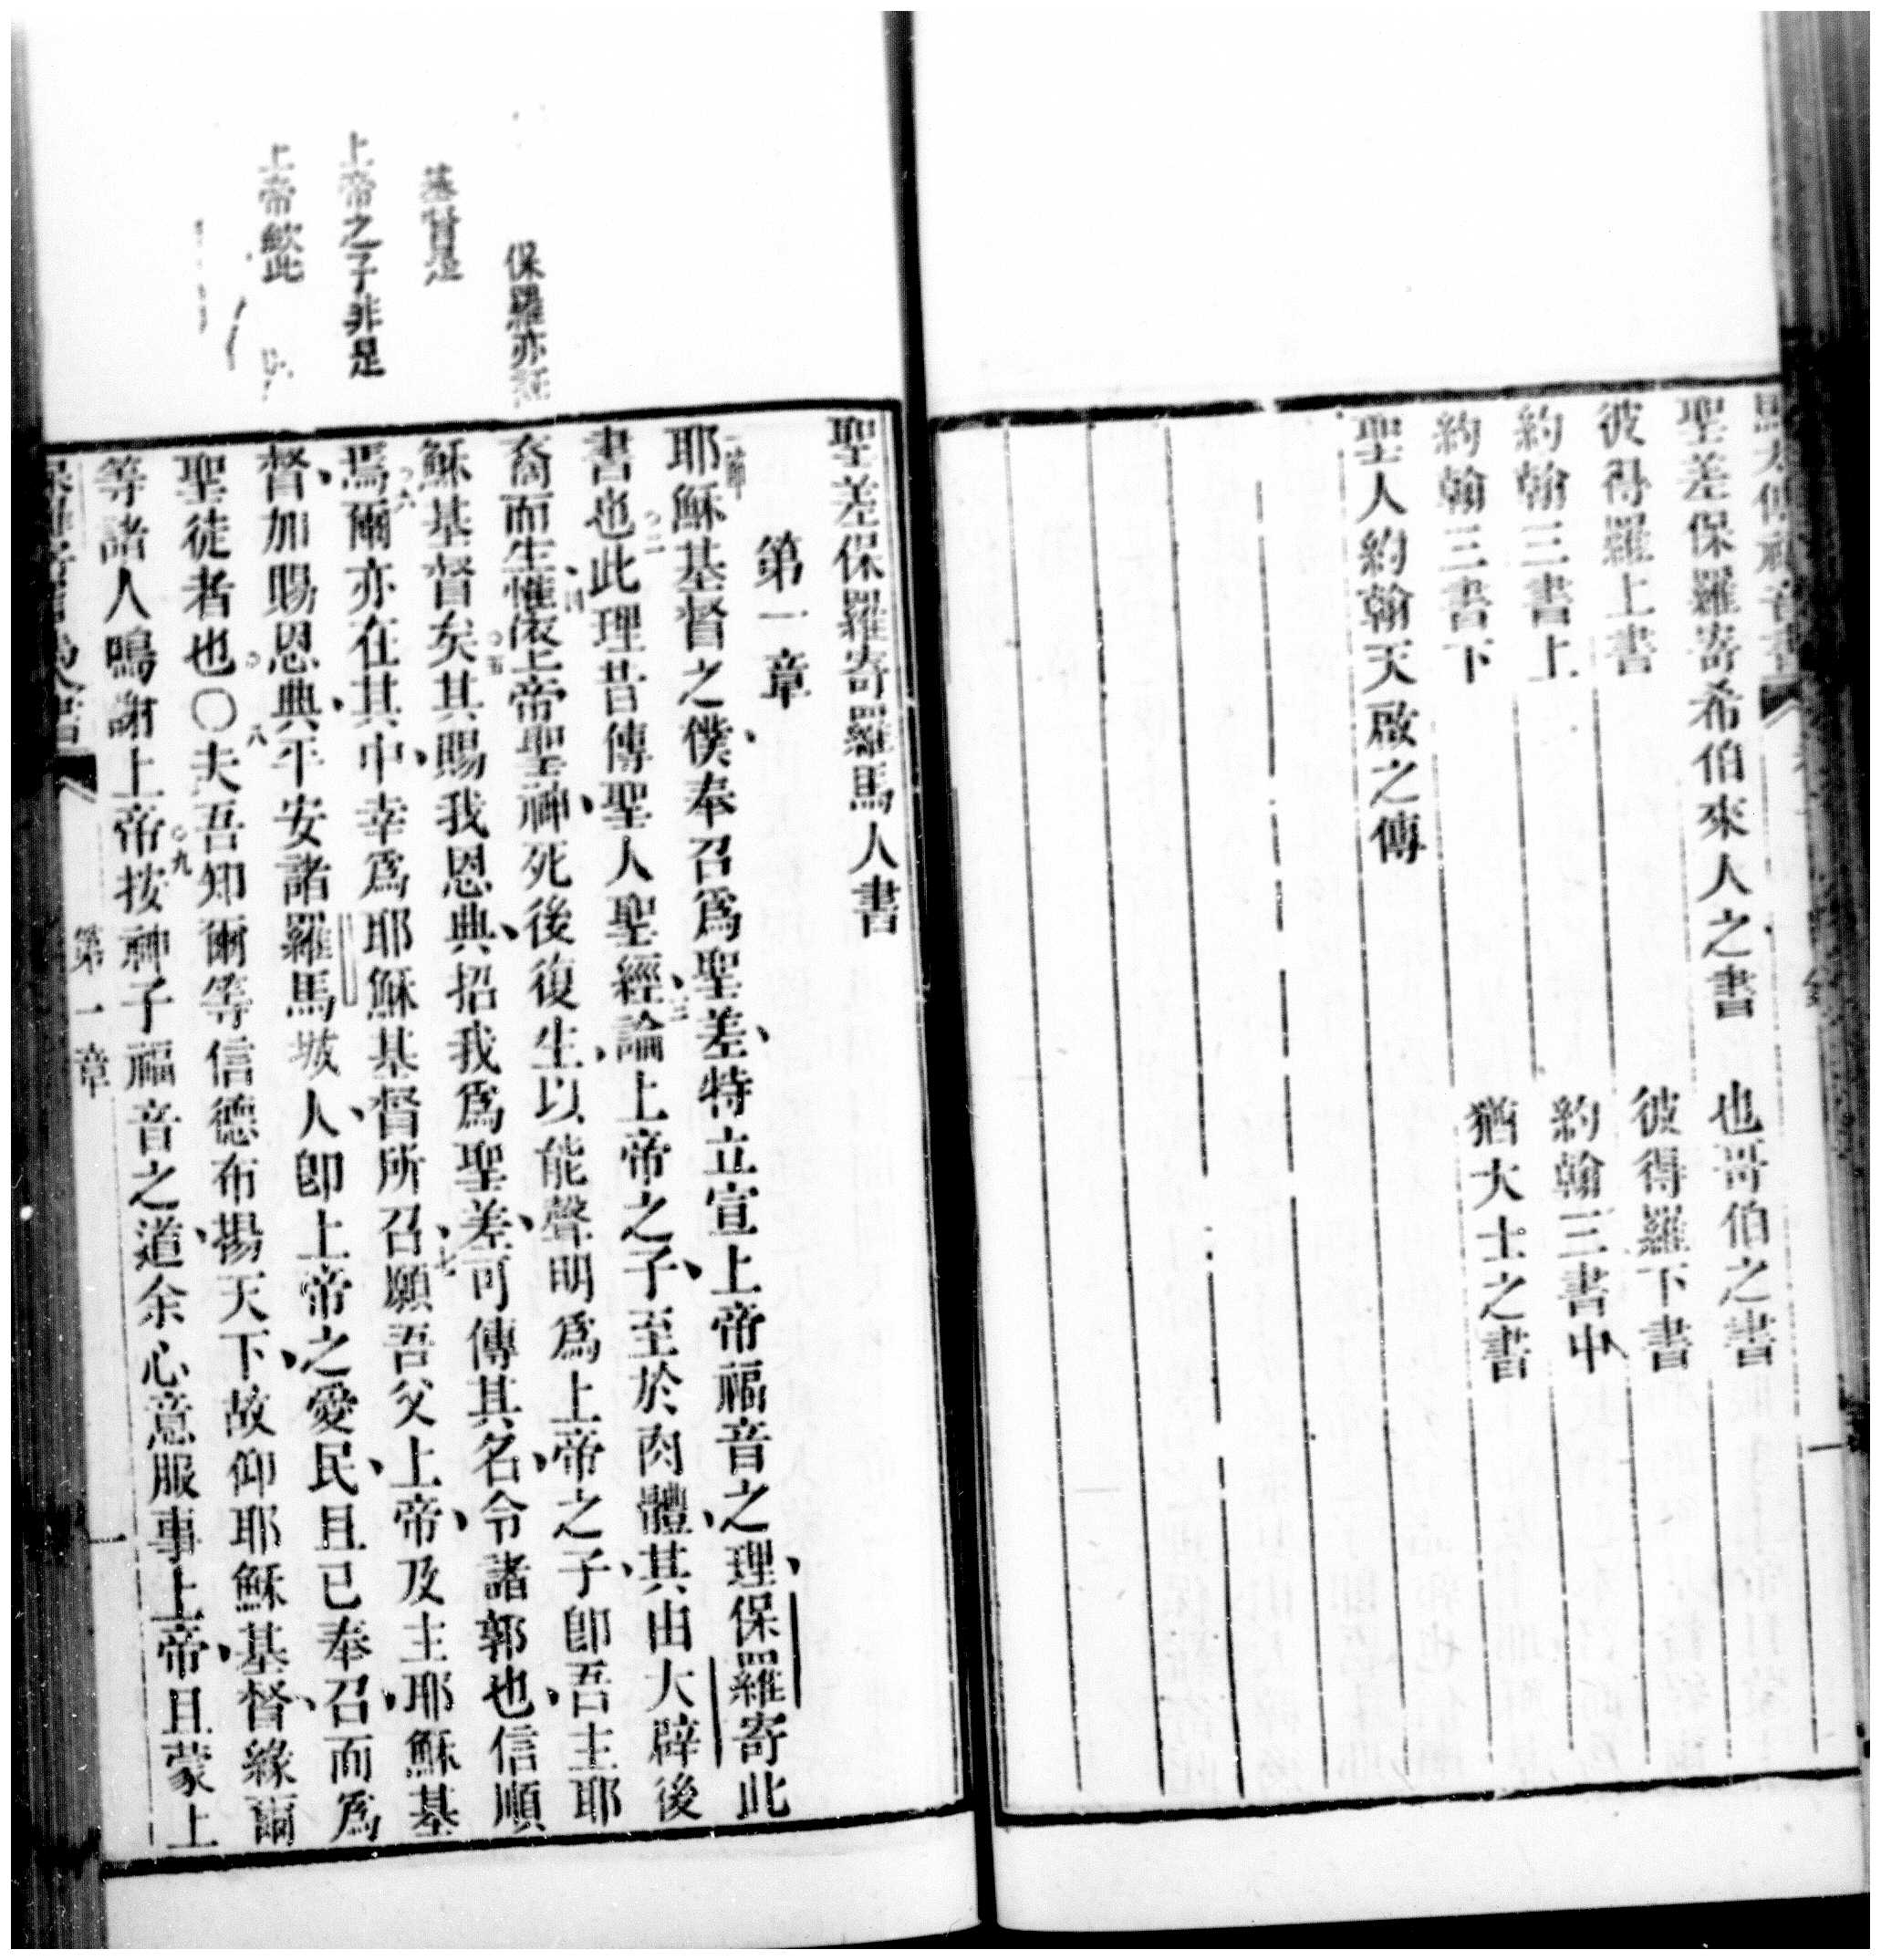 聖差保羅寄希伯來人之書　也哥伯之書
彼得羅上書　彼得羅下書
約翰三書上　約翰三書中
約翰三書下　猶大士之書
聖人約翰天啟之傳
保羅亦証
基督是
上帝之子非是
上帝欽此
聖差保羅寄羅馬人書
第一章
一節耶穌基督之僕奉召爲聖差特立宣上帝福音之理保羅寄此
書也二此理昔傳聖人聖經三論上帝之子至於肉體其由大辟後
裔而生四惟依上帝聖神死後復生以能聲明爲上帝之子卽吾主耶
穌基督矣五其賜我恩典招我爲聖差可傳其名令諸郭也信順
焉六爾亦在其中幸爲耶穌基督所召七願吾父上帝及主耶穌基
督加賜恩典平安諸羅馬坡人卽上帝之愛民且已奉召而爲
聖徒者也〇八夫吾知爾等信德布揚天下故仰耶穌基督緣爾
等諸人鳴謝上帝九按神子福音之道余心意服事上帝且蒙上
第一章
一